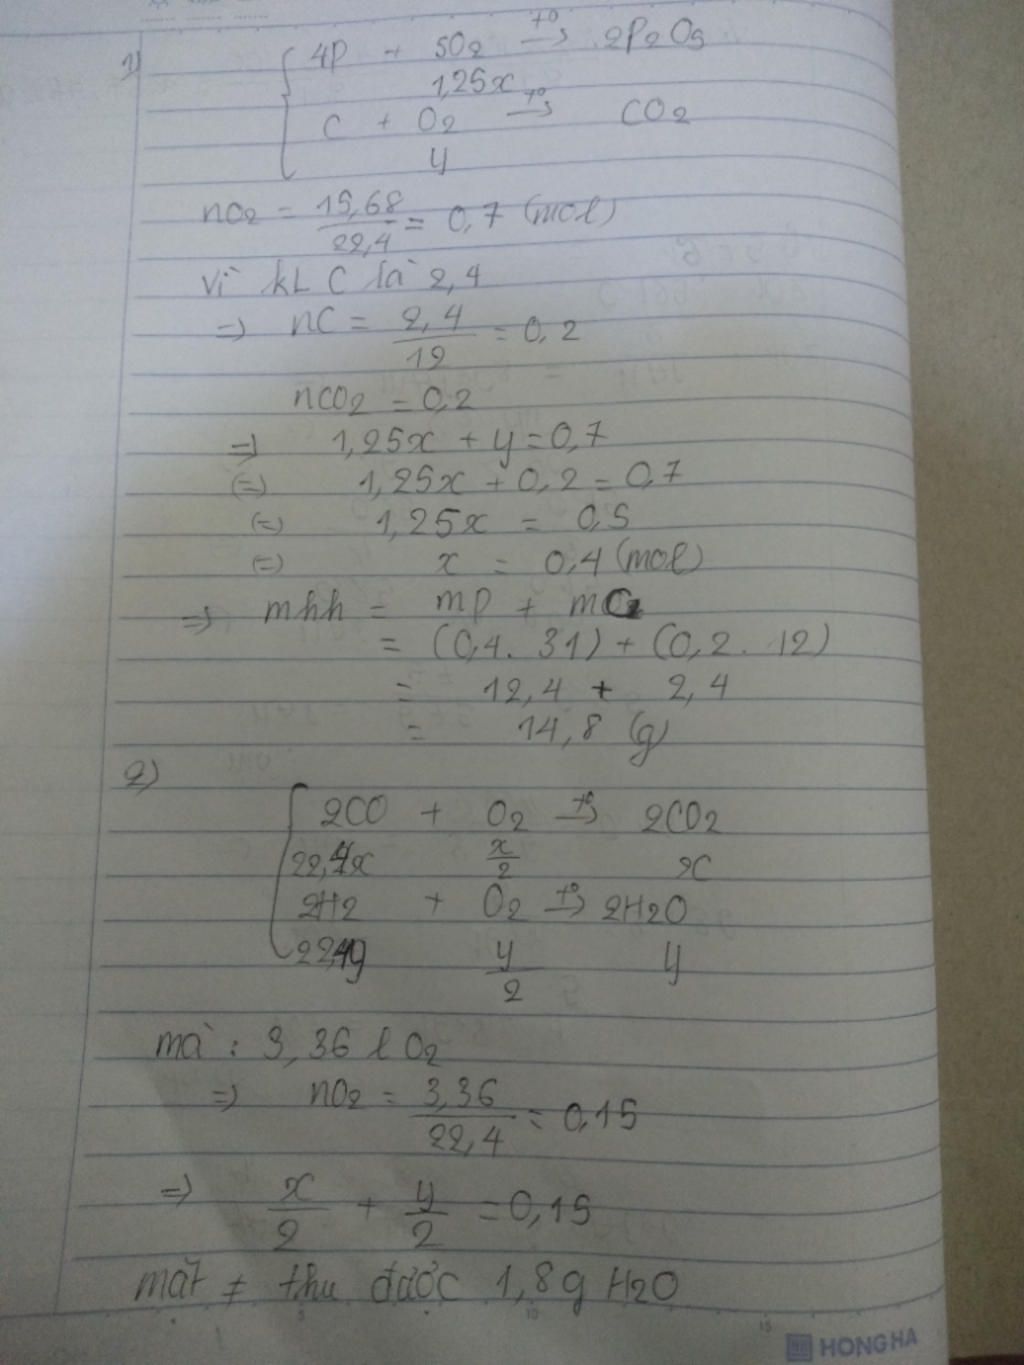 1) 4P + 5O2 t°→ 2P2O5
1,25x
C + O2 t°→ CO2
y
nO2 = 15,68/22,4 = 0,7 (mol)
Vì kL C là 2,4
=> nC = 2,4/12 = 0,2
nCO2 = 0,2
=> 1,25x + y = 0,7
(=) 1,25x + 0,2 = 0,7
(=) 1,25x = 0,5
(=) x = 0,4 (mol)
=> mhh = mP + mC
= (0,4. 31) + (0,2. 12)
= 12,4 + 2,4
= 14,8 (g)
2)
2CO + O2 t°→ 2CO2
22,4x x/2 x
2H2 + O2 t°→ 2H2O
22,4y y/2 y
mà : 3,36 l O2
=> nO2 = 3,36/22,4 = 0,15
=> x/2 + y/2 = 0,15
mặt ≠ thu được 1,8g H2O
5 10 15
HONG HA